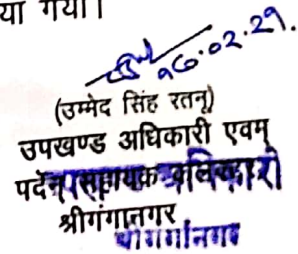 या गया।
26.02.21.
(उम्मेद सिंह रतनू)
उपखण्ड अधिकारी एवम्
पदेन सहायक कलिक्टर
श्रीगंगानगर
श्रीगंगानगर